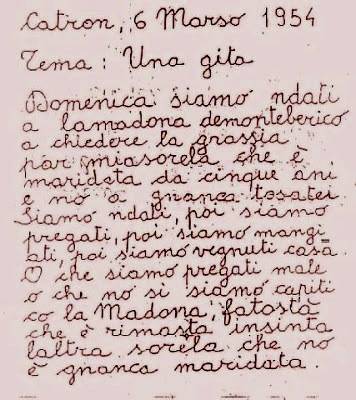 Catron, 6 Marso 1954
Tema : Una gita
Domenica siamo ndati
a lamadona demonteberico
a chiedere la grassia
par miasorela che è
maridata da cinque ani
e nò à gnanca tosatei
Siamo ndati, poi siamo
pregati, poi siamo mangi
ati, poi siamo vegnuti casa.
O che siamo pregati male
o che no si siamo capiti
co la Madona, fatostà
che è rimasta insinta
laltra sorela che no
è gnanca maridata.